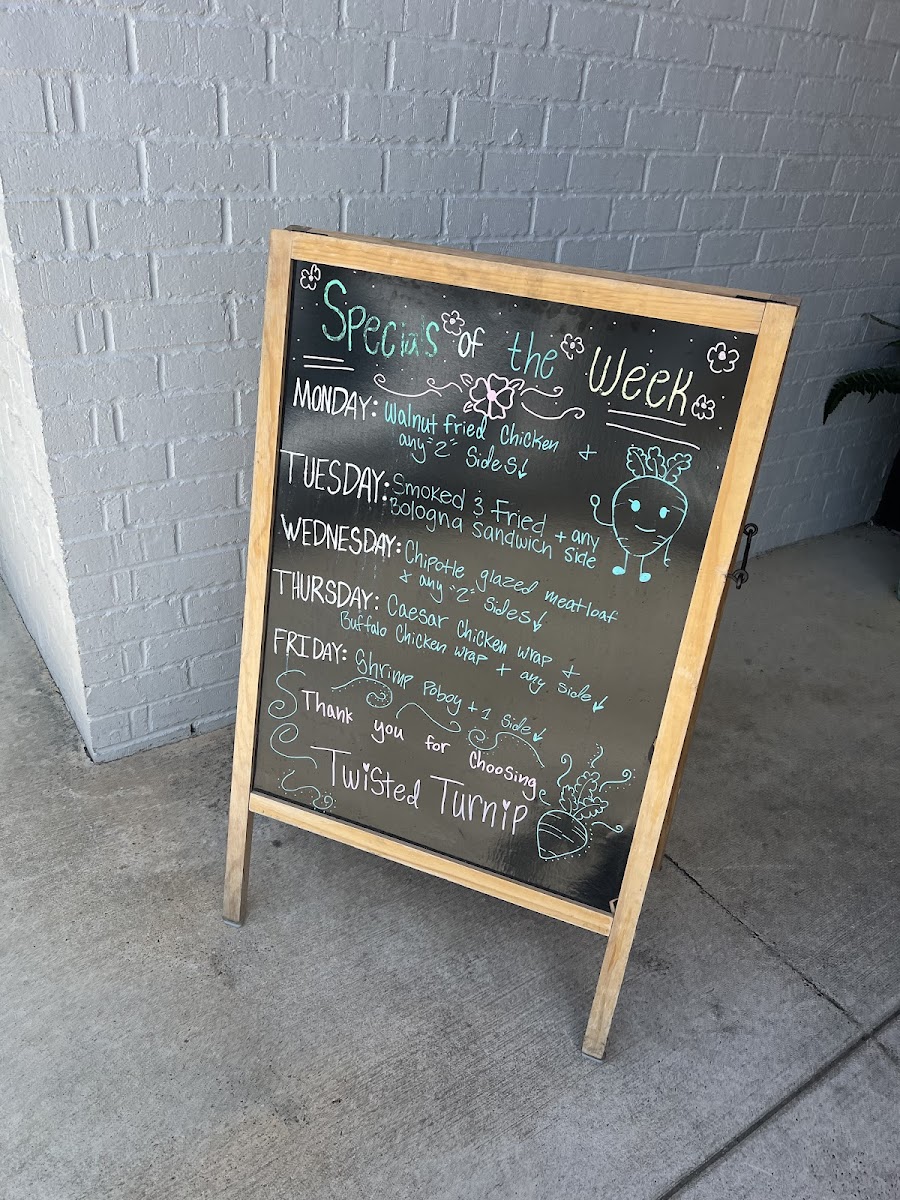 Specials of the Week
MONDAY: Walnut fried Chicken &
any "2" Sides!
TUESDAY: Smoked & Fried + any
Bologna sandwich side
WEDNESDAY: Chipotle glazed meatloaf
& any "2" Sides!
THURSDAY: Caesar Chicken wrap &
Buffalo Chicken wrap + any side!
FRIDAY: Shrimp Poboy + 1 Side!
Thank you for choosing
Twisted Turnip